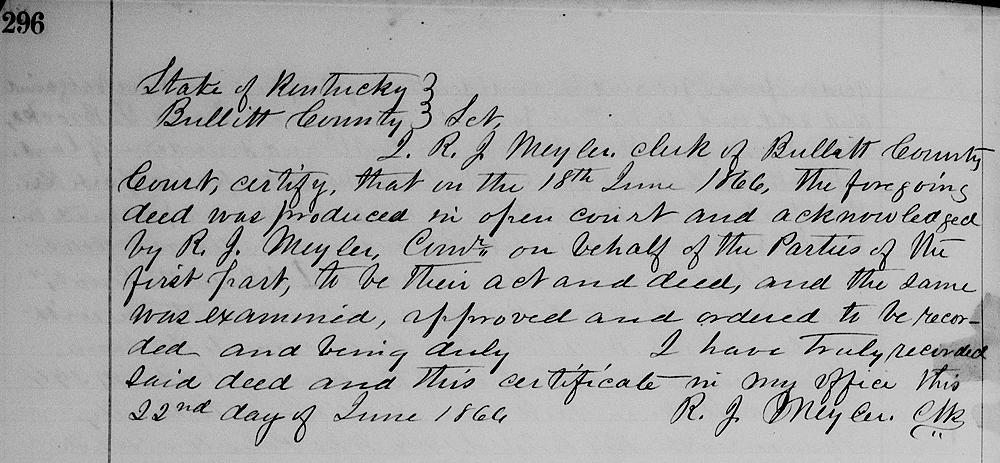 296
State of Kentucky }
Bullitt County } Sct,
I. R. J. Meyler. clerk of Bullitt County
Court, certify, that on the 18th June 1866, the foregoing
deed was produced in open court and acknowledged
by R. J. Meyler, Comr. on behalf of the Parties of the
first part, to be their act and deed, and the same
was examined, approved and ordered to be recor-
ded and being duly I have truly recorded
said deed and this certificate in my office this
22nd day of June 1866 R. J. Meyler. Clk